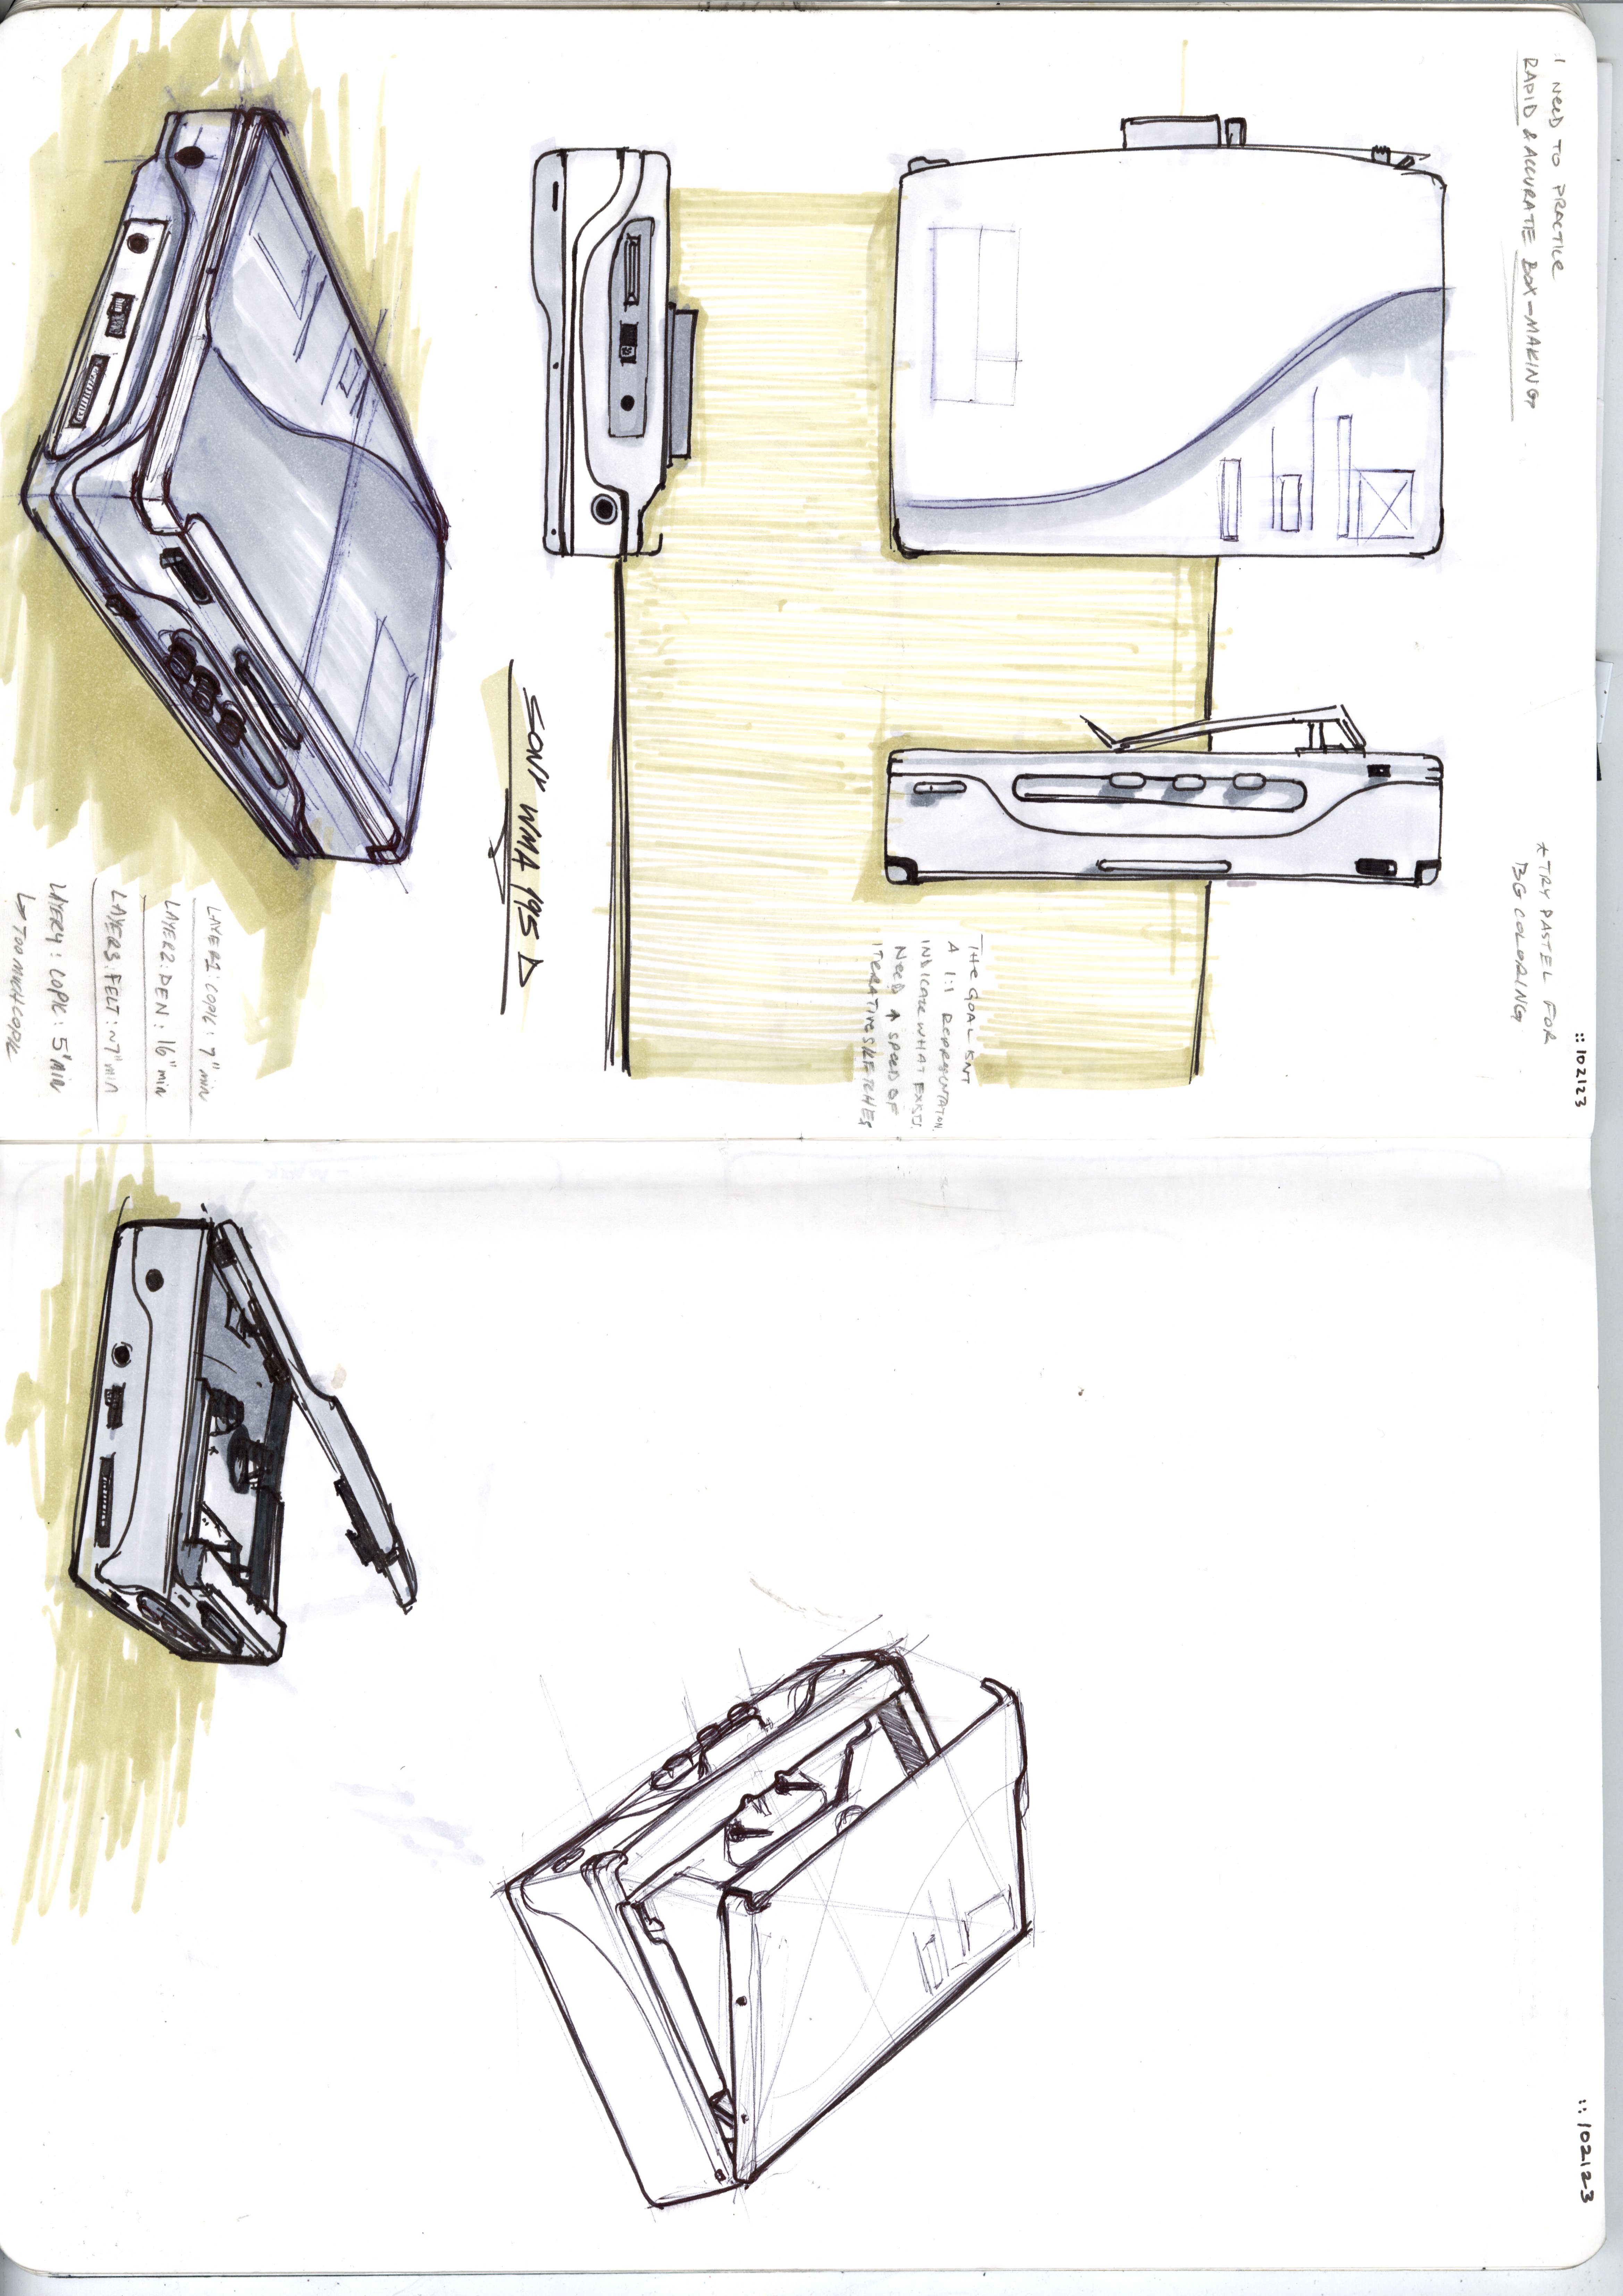 :: 102123
:: 102123
I NEED TO PRACTICE
RAPID & ACCURATE BOX-MAKING
* TRY PASTEL FOR
BG COLORING
THE GOAL ISNT
A 1:1 REPRESENTATION.
INDICATE WHAT EXISTS.
NEED ↑ SPEED OF
ITERATIVE SKETCHES
SONY WMA 195
LAYER1: COPIC: 7" min
LAYER2: PEN: 16" min
LAYER3: FELT: ~7" min
LAYER4: COPIC: 5" min
↳ TOO MUCH COPIC